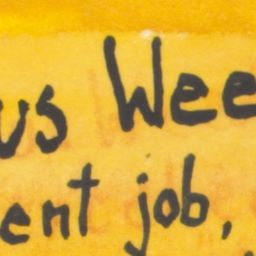 us Wee
ent job,